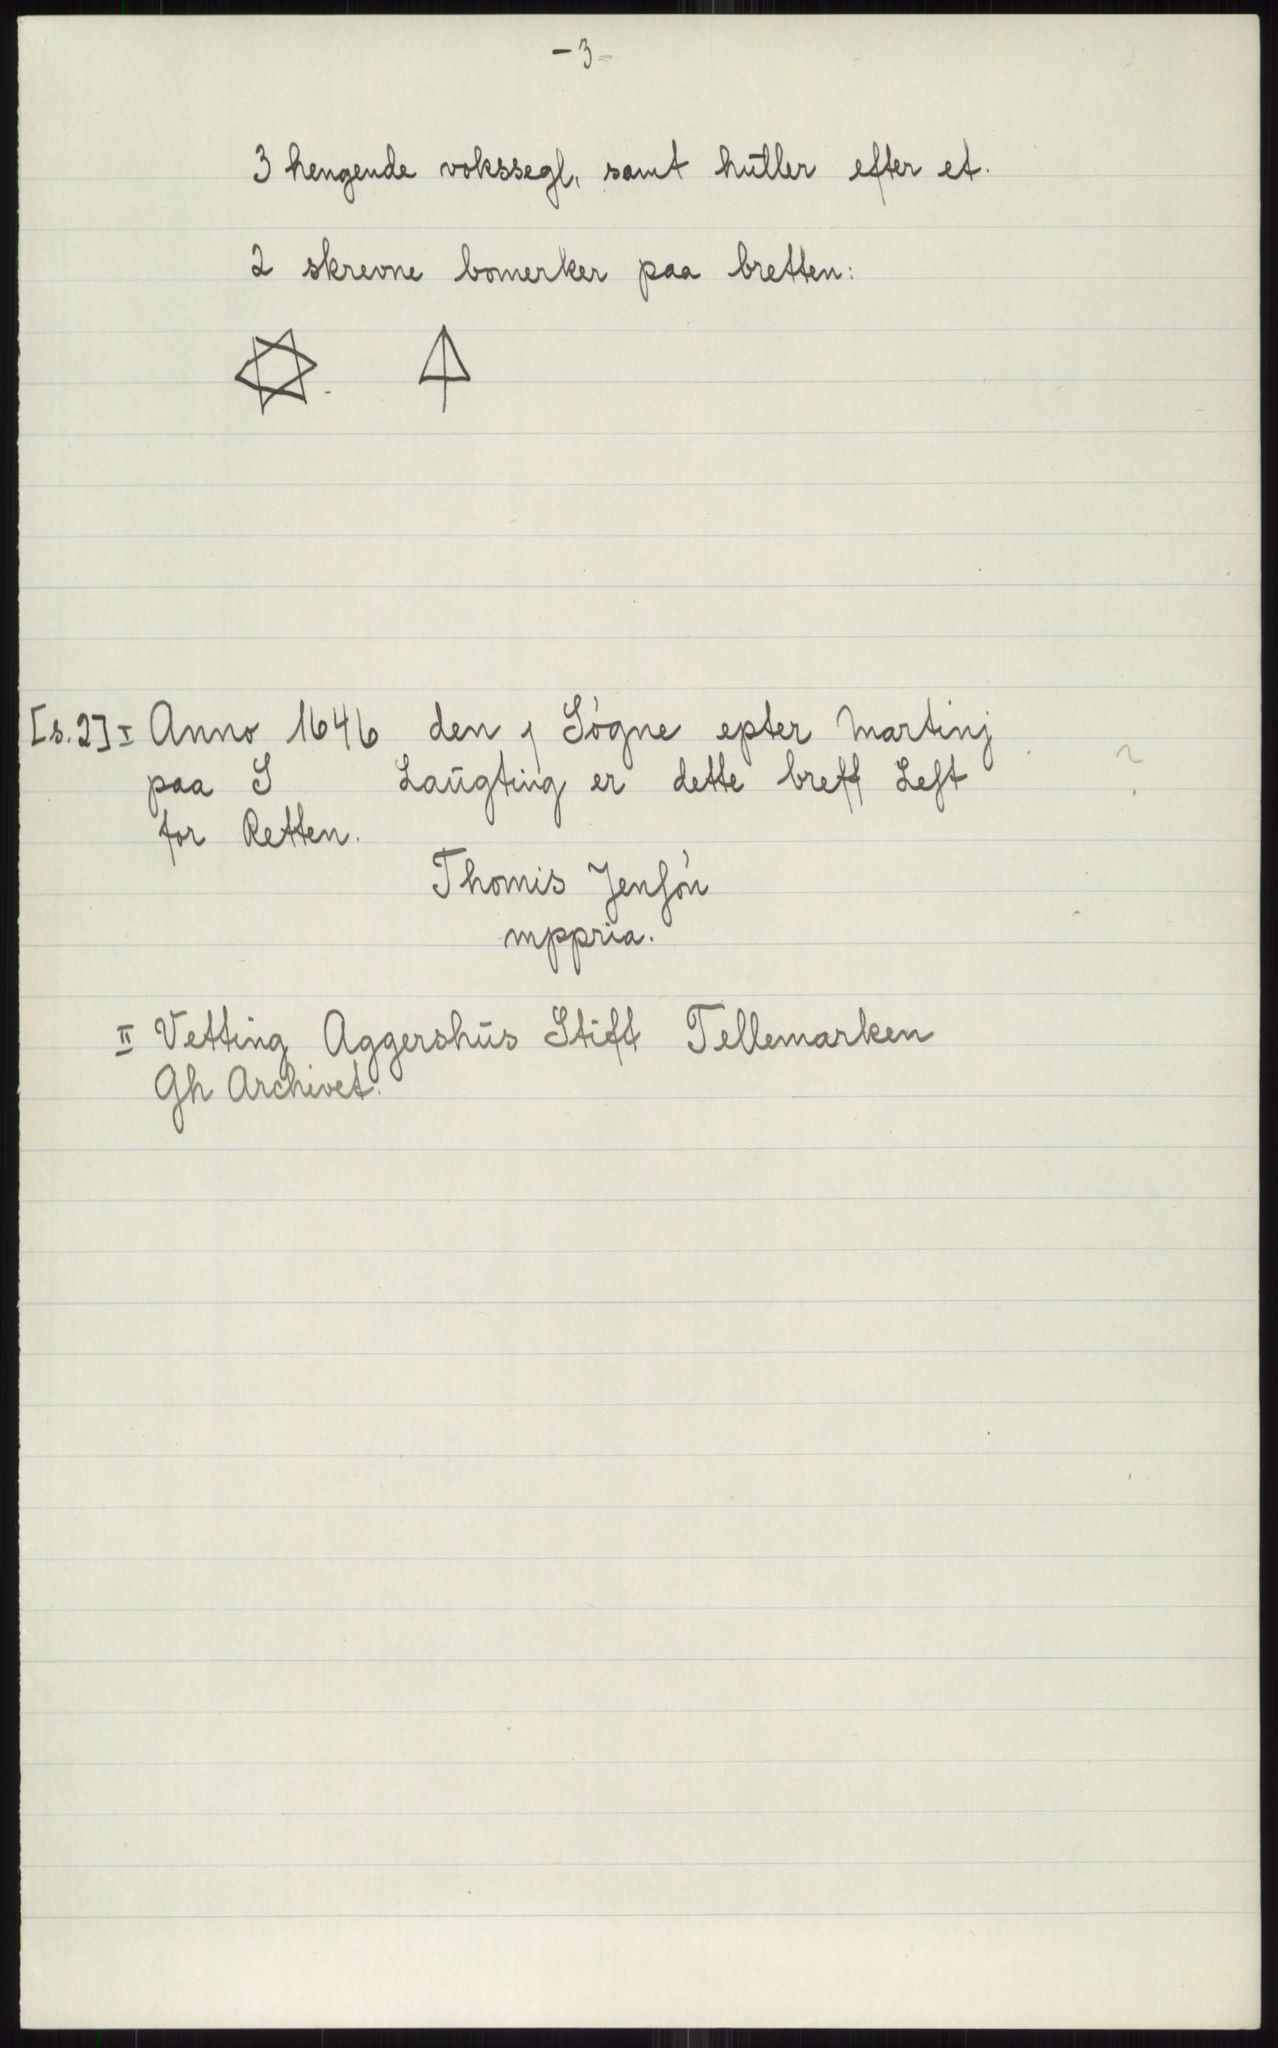 -3-
3 hengende vokssegl, samt huller efter et.
2 skrevne bomerker paa bretten:
[s.2] I Anno 1646 den j Sögne epter Martinj
paa S Laugting er dette breff Lest
for Retten.
?
Thomis Jensön
mppria.
II Vetting Aggershus Stift Tellemarken
Gh Archivet.